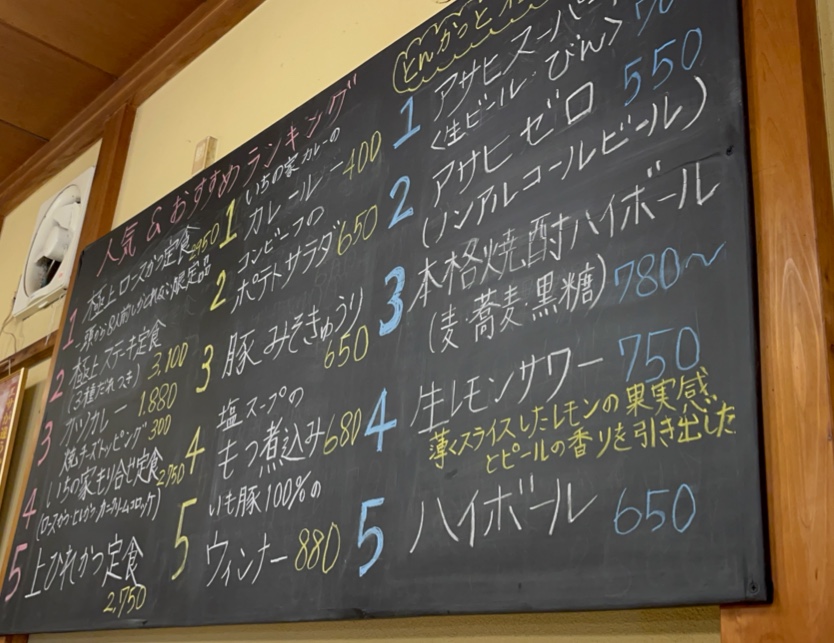 人気&おすすめランキング
1 極上ロースかつ定食 2950
一頭から8人前しかとれない限定品
2 極上ステーキ定食
(3種だれつき) 3,100
3 カツカレー 1.880
焼チーズトッピング 300
4 いちの家もり合せ定食 2750
(ロースかつ・ヒレかつ・カニクリームコロッケ)
5 上ひれかつ定食
2,750
1 いちの家カレーの
カレールー 400
2 コンビーフの
ポテトサラダ 650
3 豚とみそきゅうり
650
4 塩スープの
もつ煮込み 680
5 いも豚100%の
ウィンナー 880
とんかつと
1 アサヒスーパー
<生ビール・びん>
2 アサヒゼロ 550
(ノンアルコールビール)
3 本格焼酎ハイボール
(麦・蕎麦・黒糖) 780〜
4 生レモンサワー 750
薄くスライスしたレモンの果実感
とピールの香りを引き出した
5 ハイボール 650